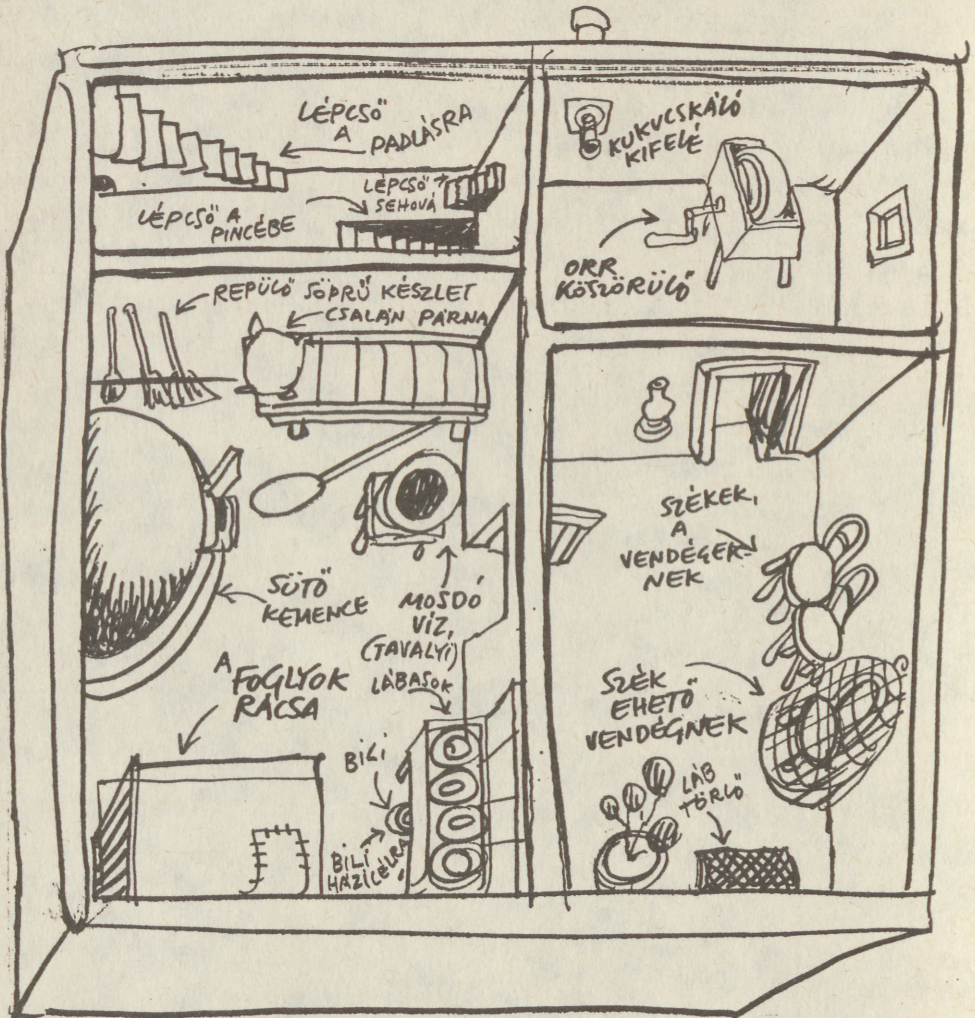 LÉPCSŐ
A
PADLÁSRA
LÉPCSŐ
SEHOVÁ
LÉPCSŐ A
PINCÉBE
KUKUCSKÁLÓ
KIFELÉ
ORR
KÖSZÖRÜLŐ
REPÜLŐ SÖPRŰ KÉSZLET
CSALÁN PÁRNA
SÜTŐ
KEMENCE
MOSDÓ
VÍZ,
(TAVALYI)
LÁBASOK
A
FOGLYOK
RÁCSA
BILI
BILI
HÁZICÉLRA
SZÉKEK,
A
VENDÉGEK-
NEK
SZÉK
EHETŐ
VENDÉGNEK
LÁB
TÖRLŐ